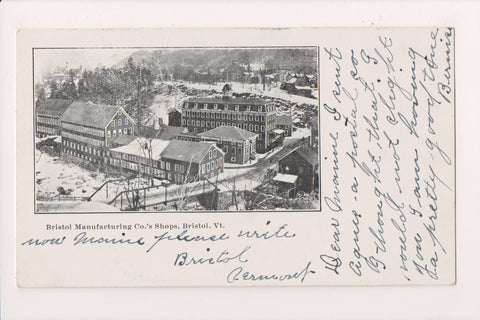 Bristol Manufacturing Co.'s Shops, Bristol, Vt.
now Manine please write
Bristol
Vermont
Dear Manine I sent
Agnes a postal so
I thought that I
would not slight
you I am having
a pretty good time
Bernice